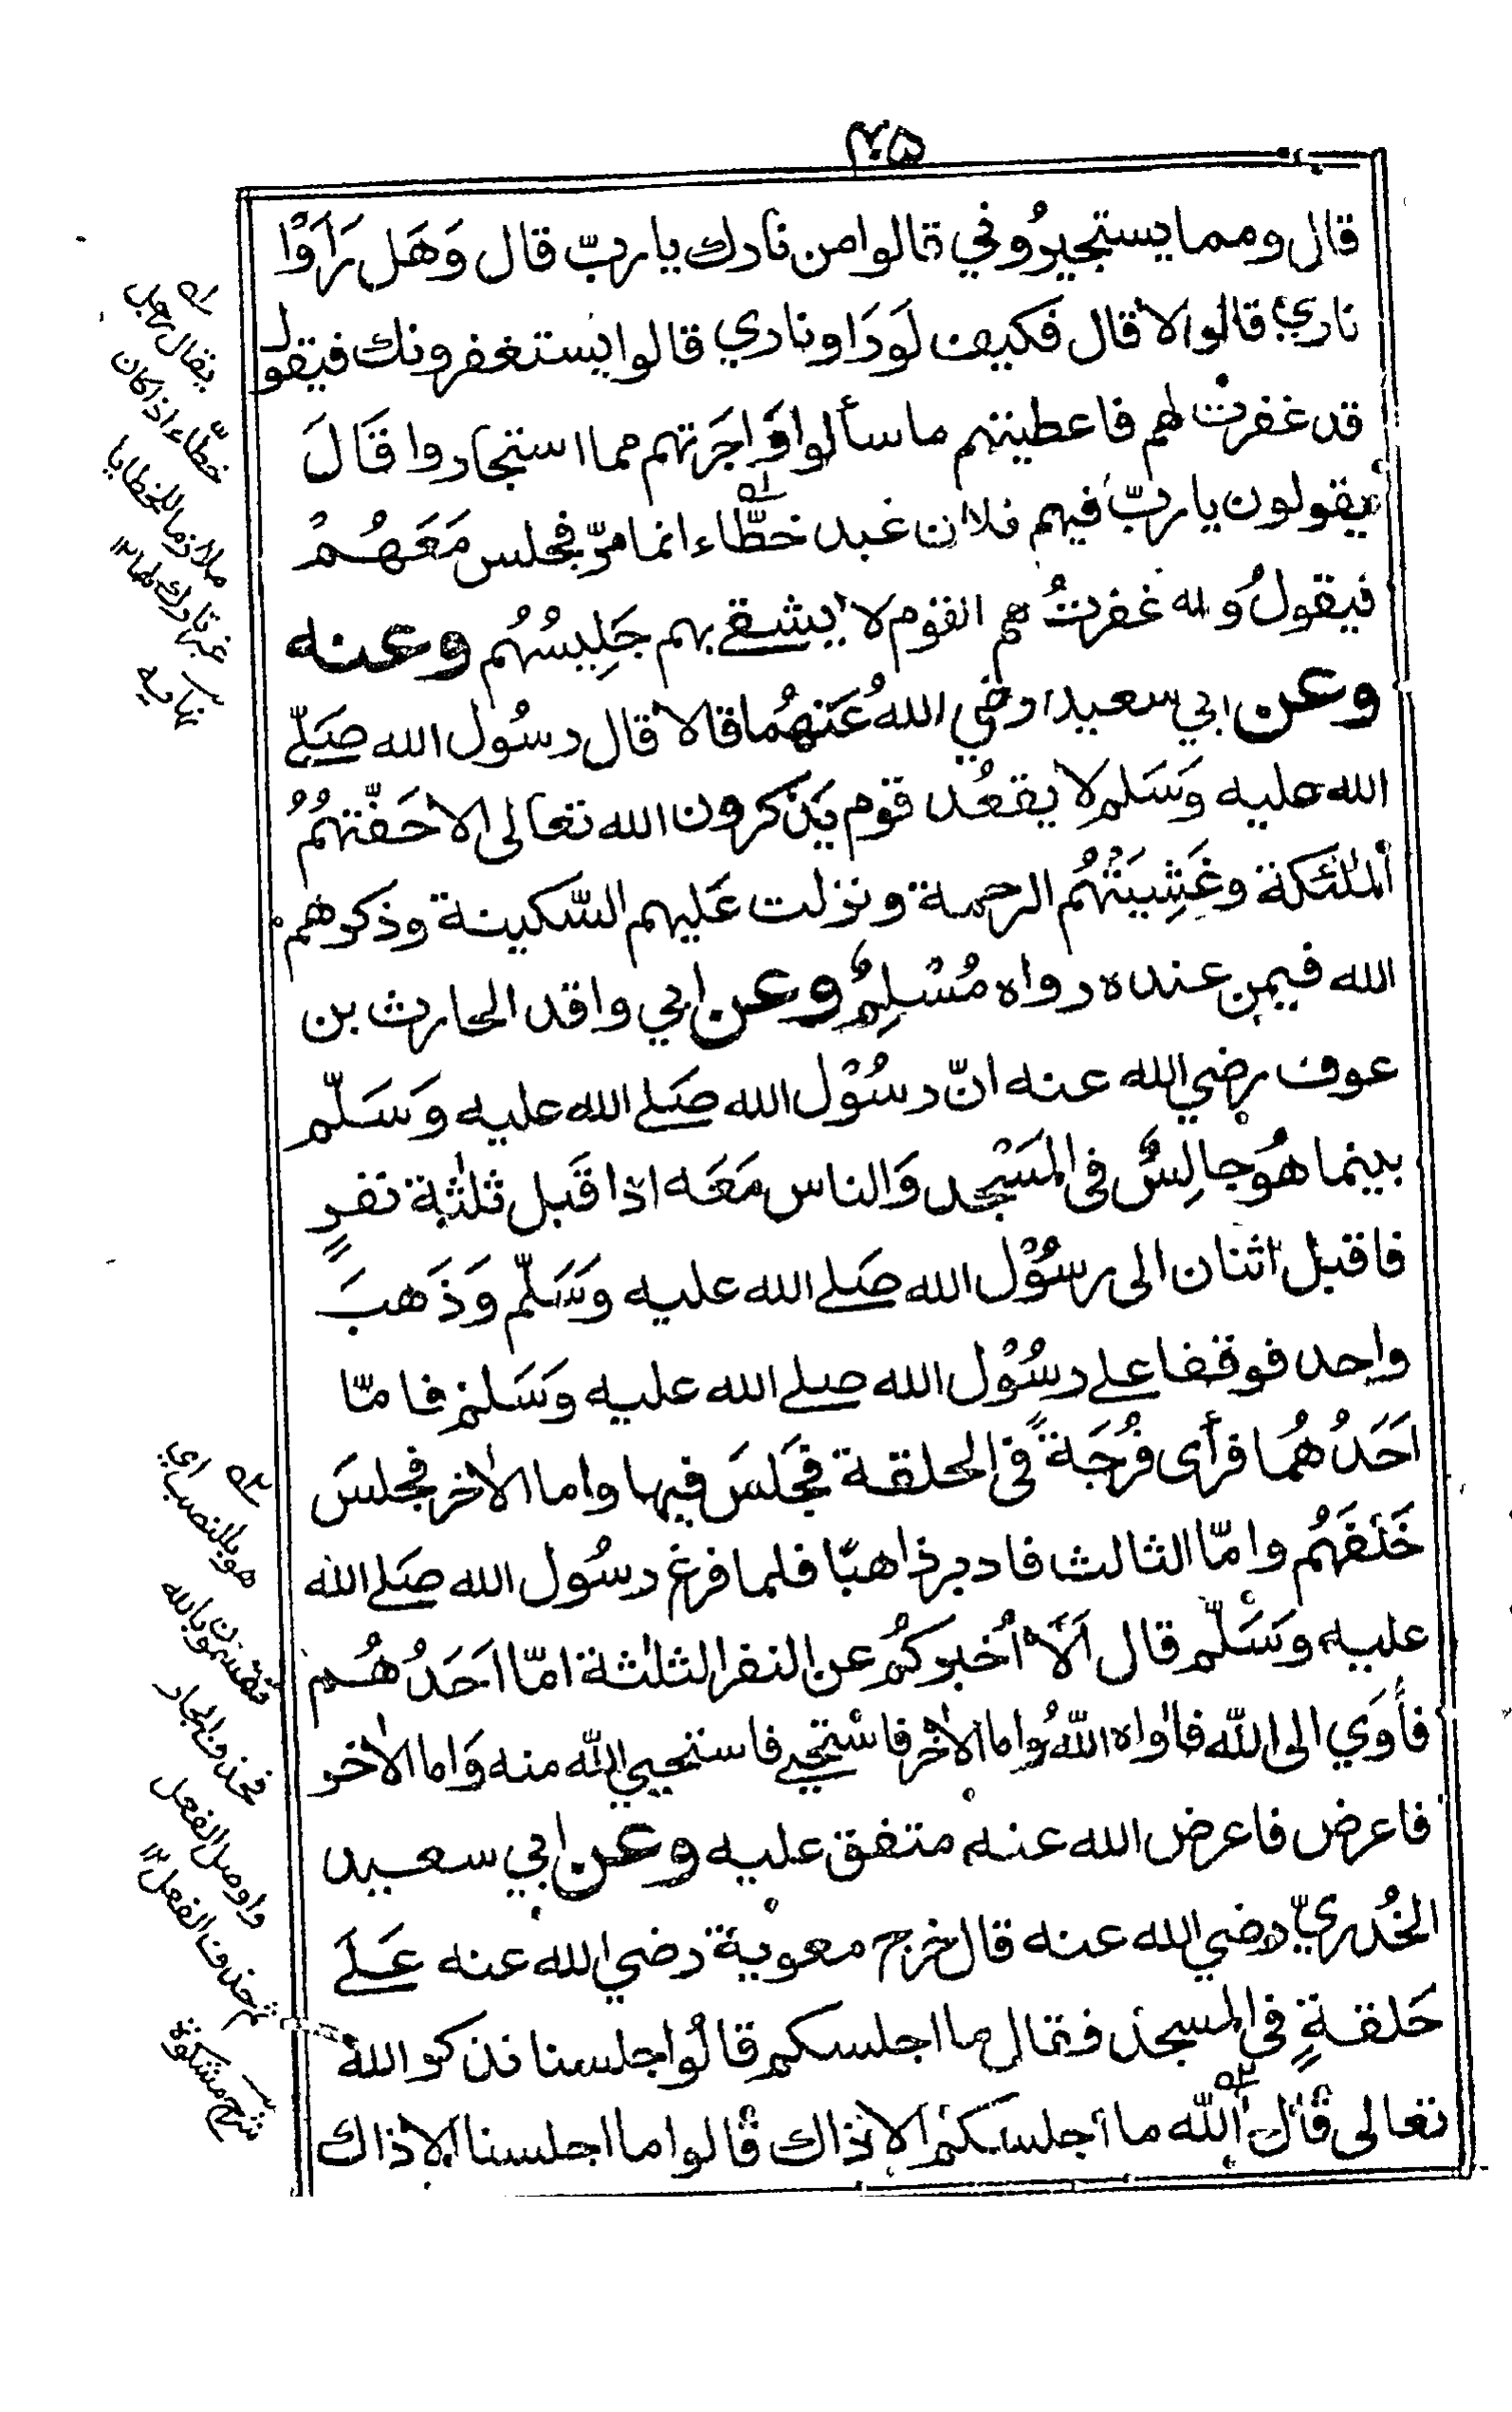 ۴۰۵
قال ومما يستجيرُوني قالوا من نارك يا ربّ قال وَهَل رَأَوْا
ناري قالوا لا قال فكيف لو رَاوا ناري قالوا يستغفرونك فيقول
قد غفرت لهم فاعطيتهم ما سألوا وَاجَرتهم مما استجاروا قَالَ
يقولون يا ربّ فيهم فلان عبد خطّاء انما مرّ فجلس مَعَهُمْ
فيقولُ وله غفرتُ هم القوم لا يشقے بهم جَلِيسُهُم وعنه
وعن ابي سعيد رضي الله عَنهُما قالا قال رسُول الله صَلّے
الله عليه وَسَلم لا يقعُد قوم يَذكرون الله تعالى الا حَفّتهُمُ
الملٰئكة وغَشِيَتْهُم الرحمة ونزلت عَليهم السّكينة وذكرهم
الله فيمن عنده رواه مُسْلِمٌ وعن ابي واقد الحارث بن
عوف رضي الله عنه انّ رسُوْل الله صَلے الله عليه وَسَلّم
بينما هُو جالِسٌ فى المَسْجد وَالناس مَعَه اذ اقبَل ثلٰثة نفرٍ
فاقبل اثنان الى رسُوْل الله صَلے الله عليه وَسَلّم وَذَهبَ
واحد فوقفا علے رسُوْل الله صلے الله عليه وَسَلم فامّا
احَدُهُما فرأى فُرْجَةً فى الحلقة فجَلَسَ فيها واما الاٰخر فجلسَ
خَلفَهُم وامّا الثالث فادبر ذاهبًا فلما فرغ رسُول الله صَلے الله
عليه وسَلّم قال اَلَا اُخبركُم عن النفر الثلٰثة امّا احَدُهُم
فأوَي الى الله فاٰواه اللهُ واما الاٰخر فاستحيے فاستحيي الله منه وَاما الاٰخر
فاعرض فاعرض الله عنه متفق عليه وعن ابي سعيد
الخُدريّ رضي الله عنه قال خرج معوية رضي الله عنه عَلَے
حَلقةٍ فى المسجد فقال ما اجلسكم قالُوا جلسنا نذكر الله
تعالى قال اٰلله ما اجلسكم الا ذاك قالوا ما اجلسنا الا ذاك
يقال رجل
خطّاء اذا كان
ملازما للخطايا
غير تارك لها ١٢
نهايه
هو بالنصب اي
تقسمون بالله
فحذف الجار
واوصل الفعل
ثم حذف الفعل ١٢
شرح مشكوة